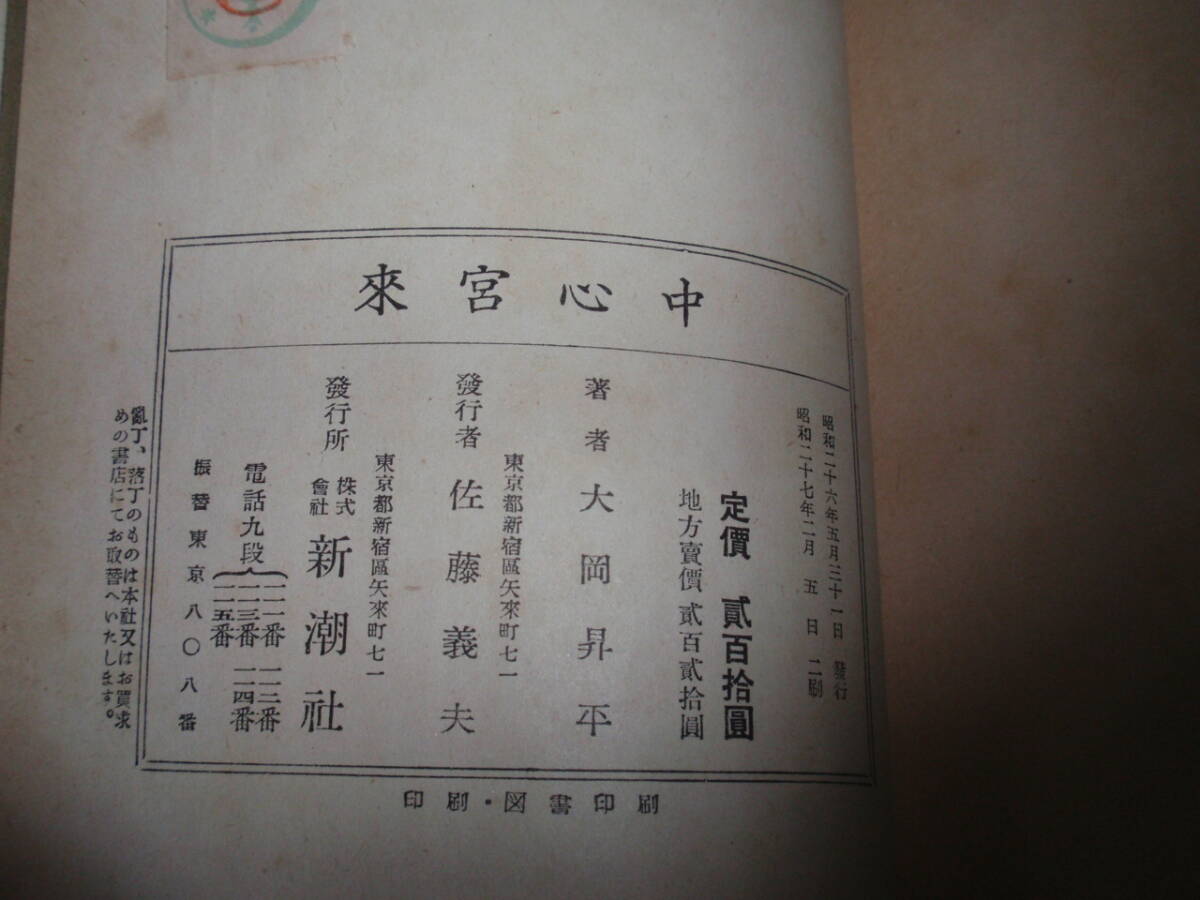 來宮心中
昭和二十六年五月三十一日 發行
昭和二十七年二月五日 二刷
定價 貳百拾圓
地方賣價 貳百貳拾圓
著者 大岡昇平
東京都新宿區矢來町七一
發行者 佐藤義夫
東京都新宿區矢來町七一
發行所 株式會社 新潮社
電話九段
一一一番 一一二番
一一三番 一一四番
一一五番
振替東京八〇八番
亂丁、落丁のものは本社又はお買求
めの書店にてお取替へいたします。
印刷・図書印刷